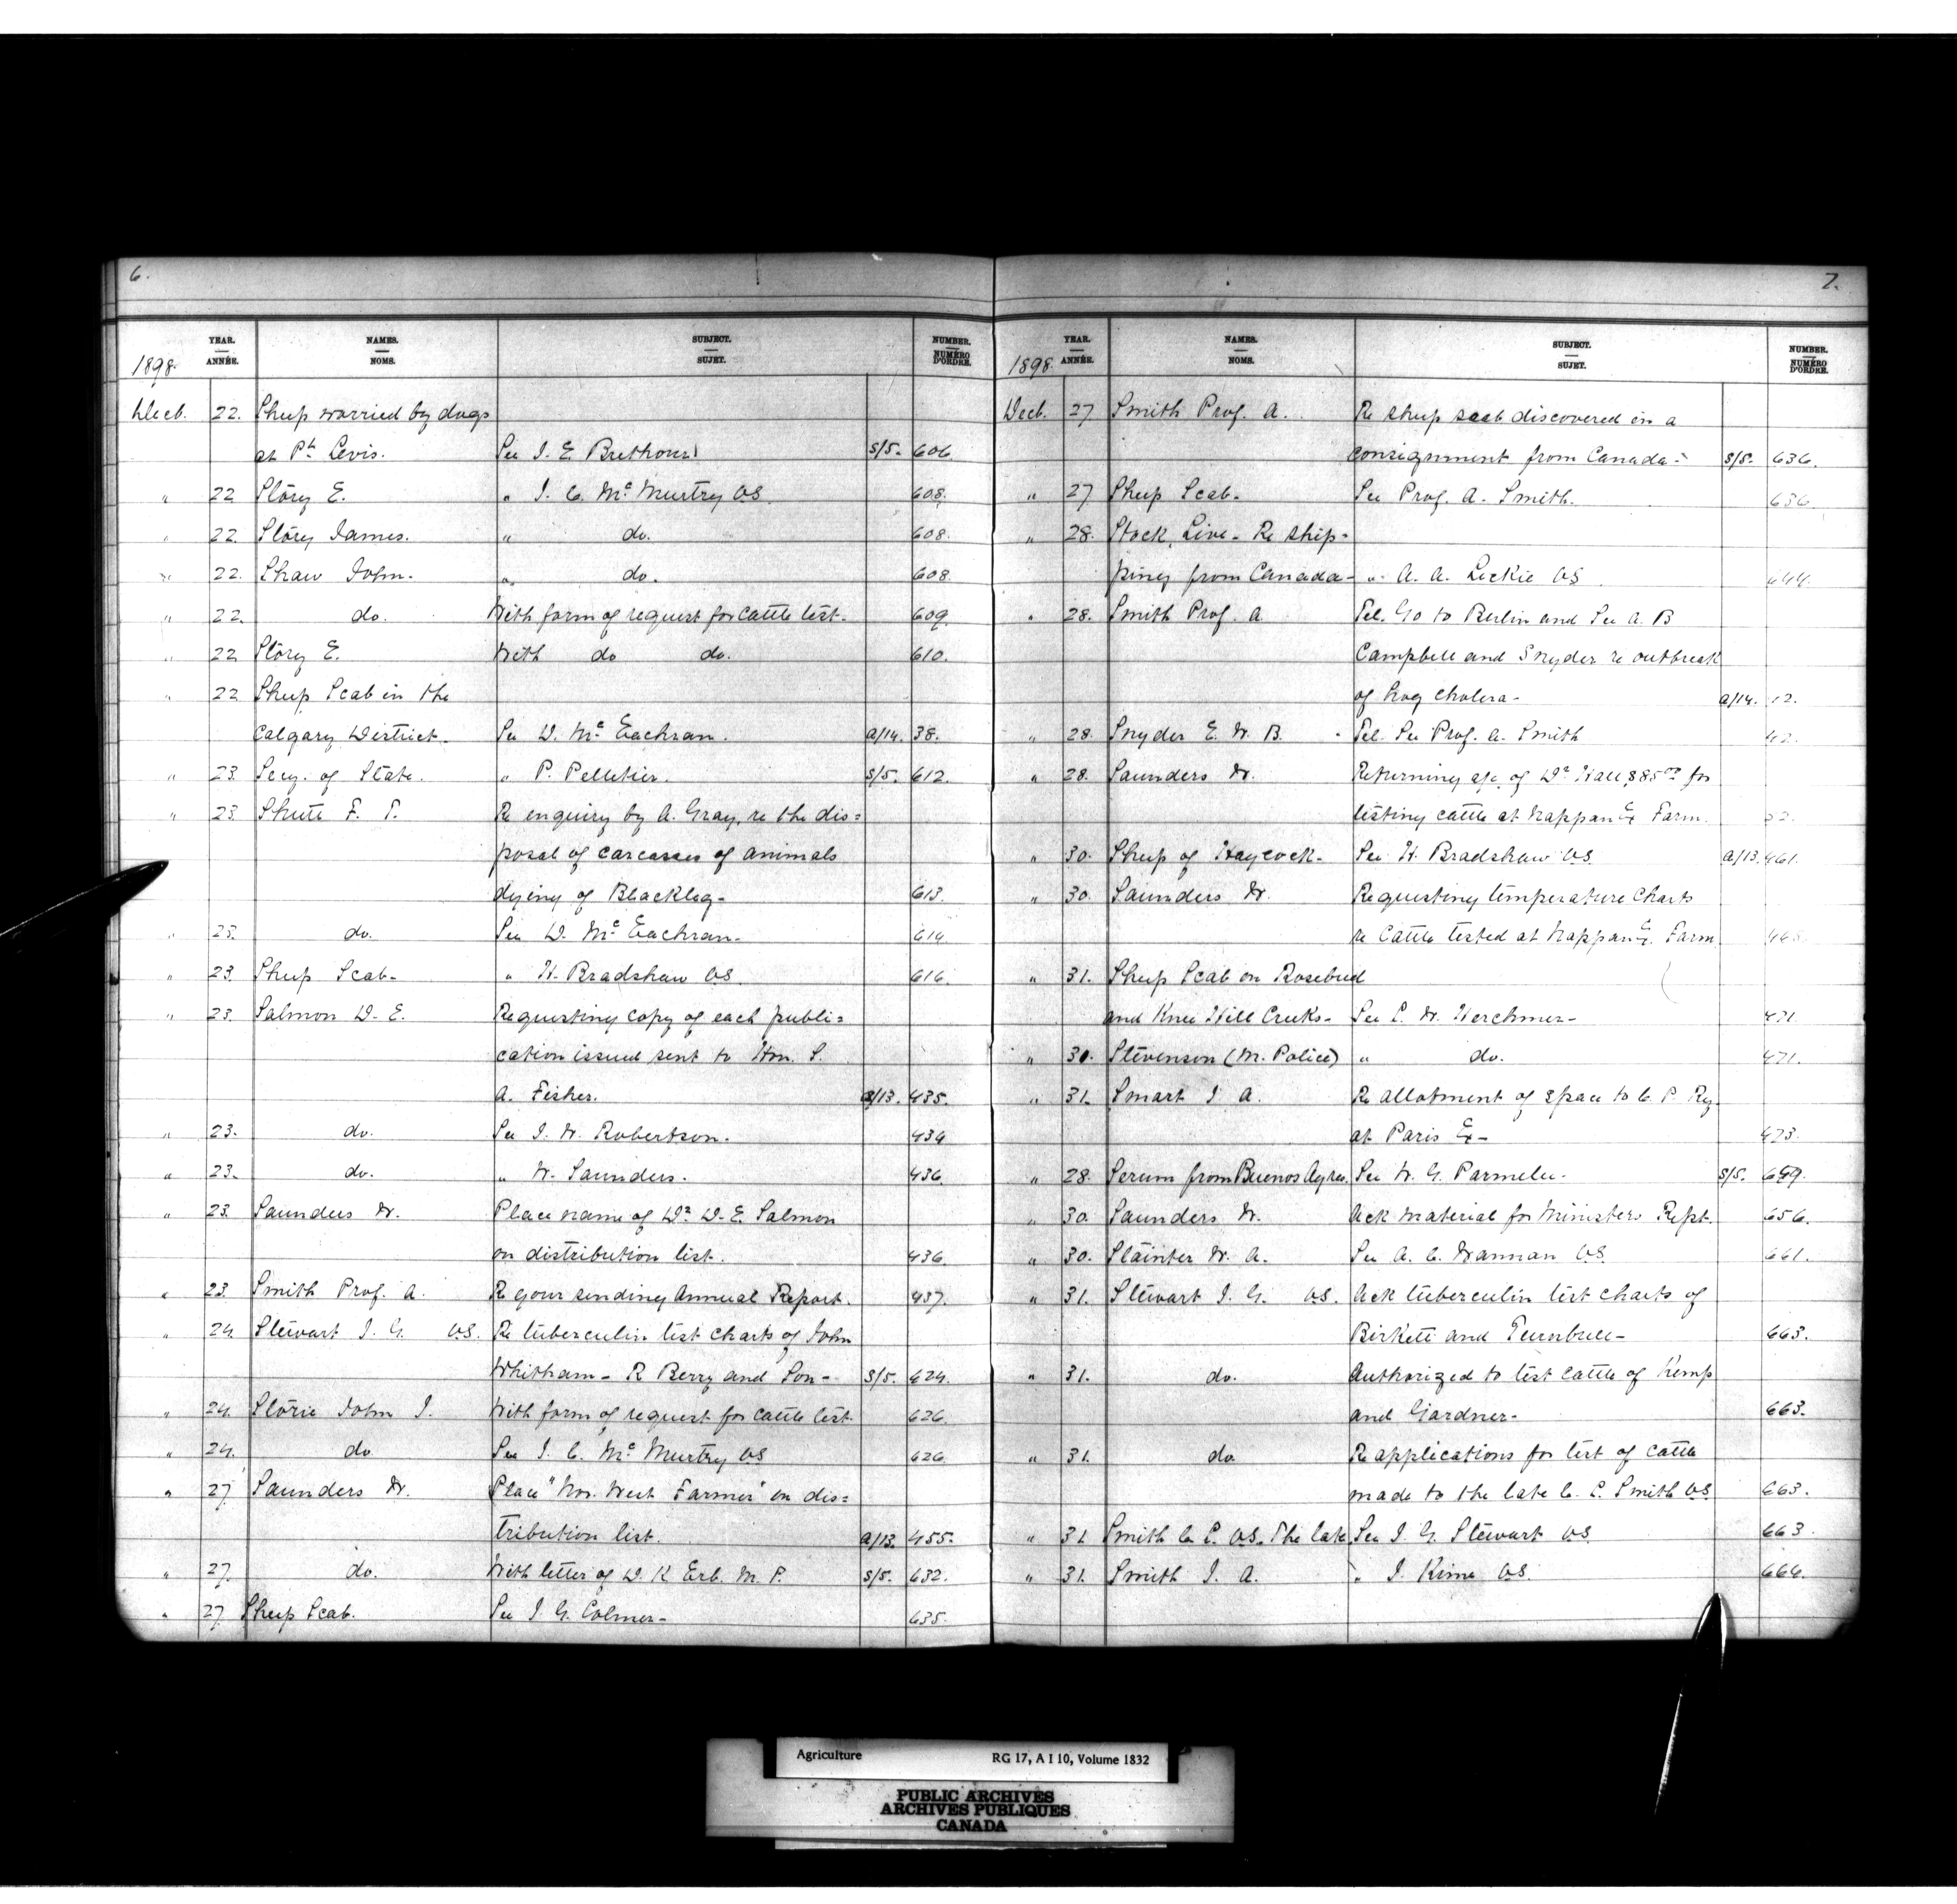 6.
YEAR. ANNÉE. NAMES. NOMS. SUBJECT. SUJET. NUMBER. NUMÉRO D'ORDRE.
1898.
Decb. 22. Sheep worried by dogs
at Pt. Levis. See J. E. Brethour S/5. 606
" 22 Story E. " J. C. McMurtry VS. 608.
" 22. Story James. " do. 608.
" 22. Shaw John. " do. 608.
" 22. do. With form of request for cattle test. 609.
" 22 Story E. With do do. 610.
" 22 Sheep Scab in the
Calgary District. See D. McEachran. a/14. 38.
" 23. Secy. of State. " P. Pelletier. S/5. 612.
" 23 Shutt F. T. Re enquiry by A. Gray, re the dis=
posal of carcasses of animals
dying of Blackleg- 613.
" 23. do. See D. McEachran. 614
" 23. Sheep Scab- " H. Bradshaw VS. 616.
" 23. Salmon D. E. Requesting copy of each publi=
cation issued sent to Hon. S.
A. Fisher. a/13. 435.
" 23. do. See J. W. Robertson. 434
" 23. do. " W. Saunders. 436
" 23. Saunders W. Place name of Dr D. E. Salmon
on distribution list. 436
" 23. Smith Prof. A. Re your sending Annual Report. 437.
" 24. Stewart J. G. VS. Re tuberculin test charts of John
Whitham- R Berry and Son- S/5. 624.
" 24. Storie John J. With form of request for cattle test. 626
" 24. do See J. C. McMurtry VS 626
" 27 Saunders W. Place "Nor. West Farmer" on dis=
tribution list. a/13. 455.
" 27. do. With letter of D. K Erb. M. P. S/5. 632.
" 27. Sheep Scab. See J. G. Colmer- 635.
7.
YEAR. ANNÉE. NAMES. NOMS. SUBJECT. SUJET. NUMBER. NUMÉRO D'ORDRE.
1898.
Decb. 27. Smith Prof. A. Re sheep scab discovered in a
consignment from Canada- S/5. 636.
" 27 Sheep Scab- See Prof. A. Smith. 636
" 28. Stock, Live- Re ship-
ping from Canada- " A. A. Leckie VS. 644.
" 28. Smith Prof. A Tel. Go to Berlin and see A. B
Campbell and Snyder re outbreak
of hog cholera- a/14. 42.
" 28. Snyder E. W. B. Tel. See Prof. A. Smith 42.
" 28. Saunders W. Returning a/c of Dr Hall $85.00 for
testing cattle at Nappan Ex Farm.
" 30. Sheep of Haycock- See H. Bradshaw VS a/13. 461.
" 30. Saunders W. Requesting temperature charts
re Cattle tested at Nappan Ex. Farm
" 31. Sheep Scab on Rosebud
and Knee Hill Creeks- See L. W. Herchmer- 471.
" 30. Stevenson (M. Police) " do. 471.
" 31. Smart J. A. Re allotment of space to C. P. Ry
at Paris Ex- 473.
" 28. Serum from Buenos Ayres. See W. G. Parmelee. S/5. 649.
" 30. Saunders W. Ack material for Ministers Rept. 656.
" 30. Stainter W. A. See A. C. Wannan VS. 661.
" 31. Stewart J. G. VS. Ack tuberculin test charts of
Birkett and Turnbull- 663.
" 31. do. Authorized to test cattle of Kemp
and Gardner- 663.
" 31. do Re applications for test of cattle
made to the late C. S. Smith VS. 663.
" 31. Smith C. S. VS. The late See J. G. Stewart VS. 663.
" 31. Smith J. A. " J. Kime VS. 664.
Agriculture RG 17, A I 10, Volume 1832
PUBLIC ARCHIVES
ARCHIVES PUBLIQUES
CANADA